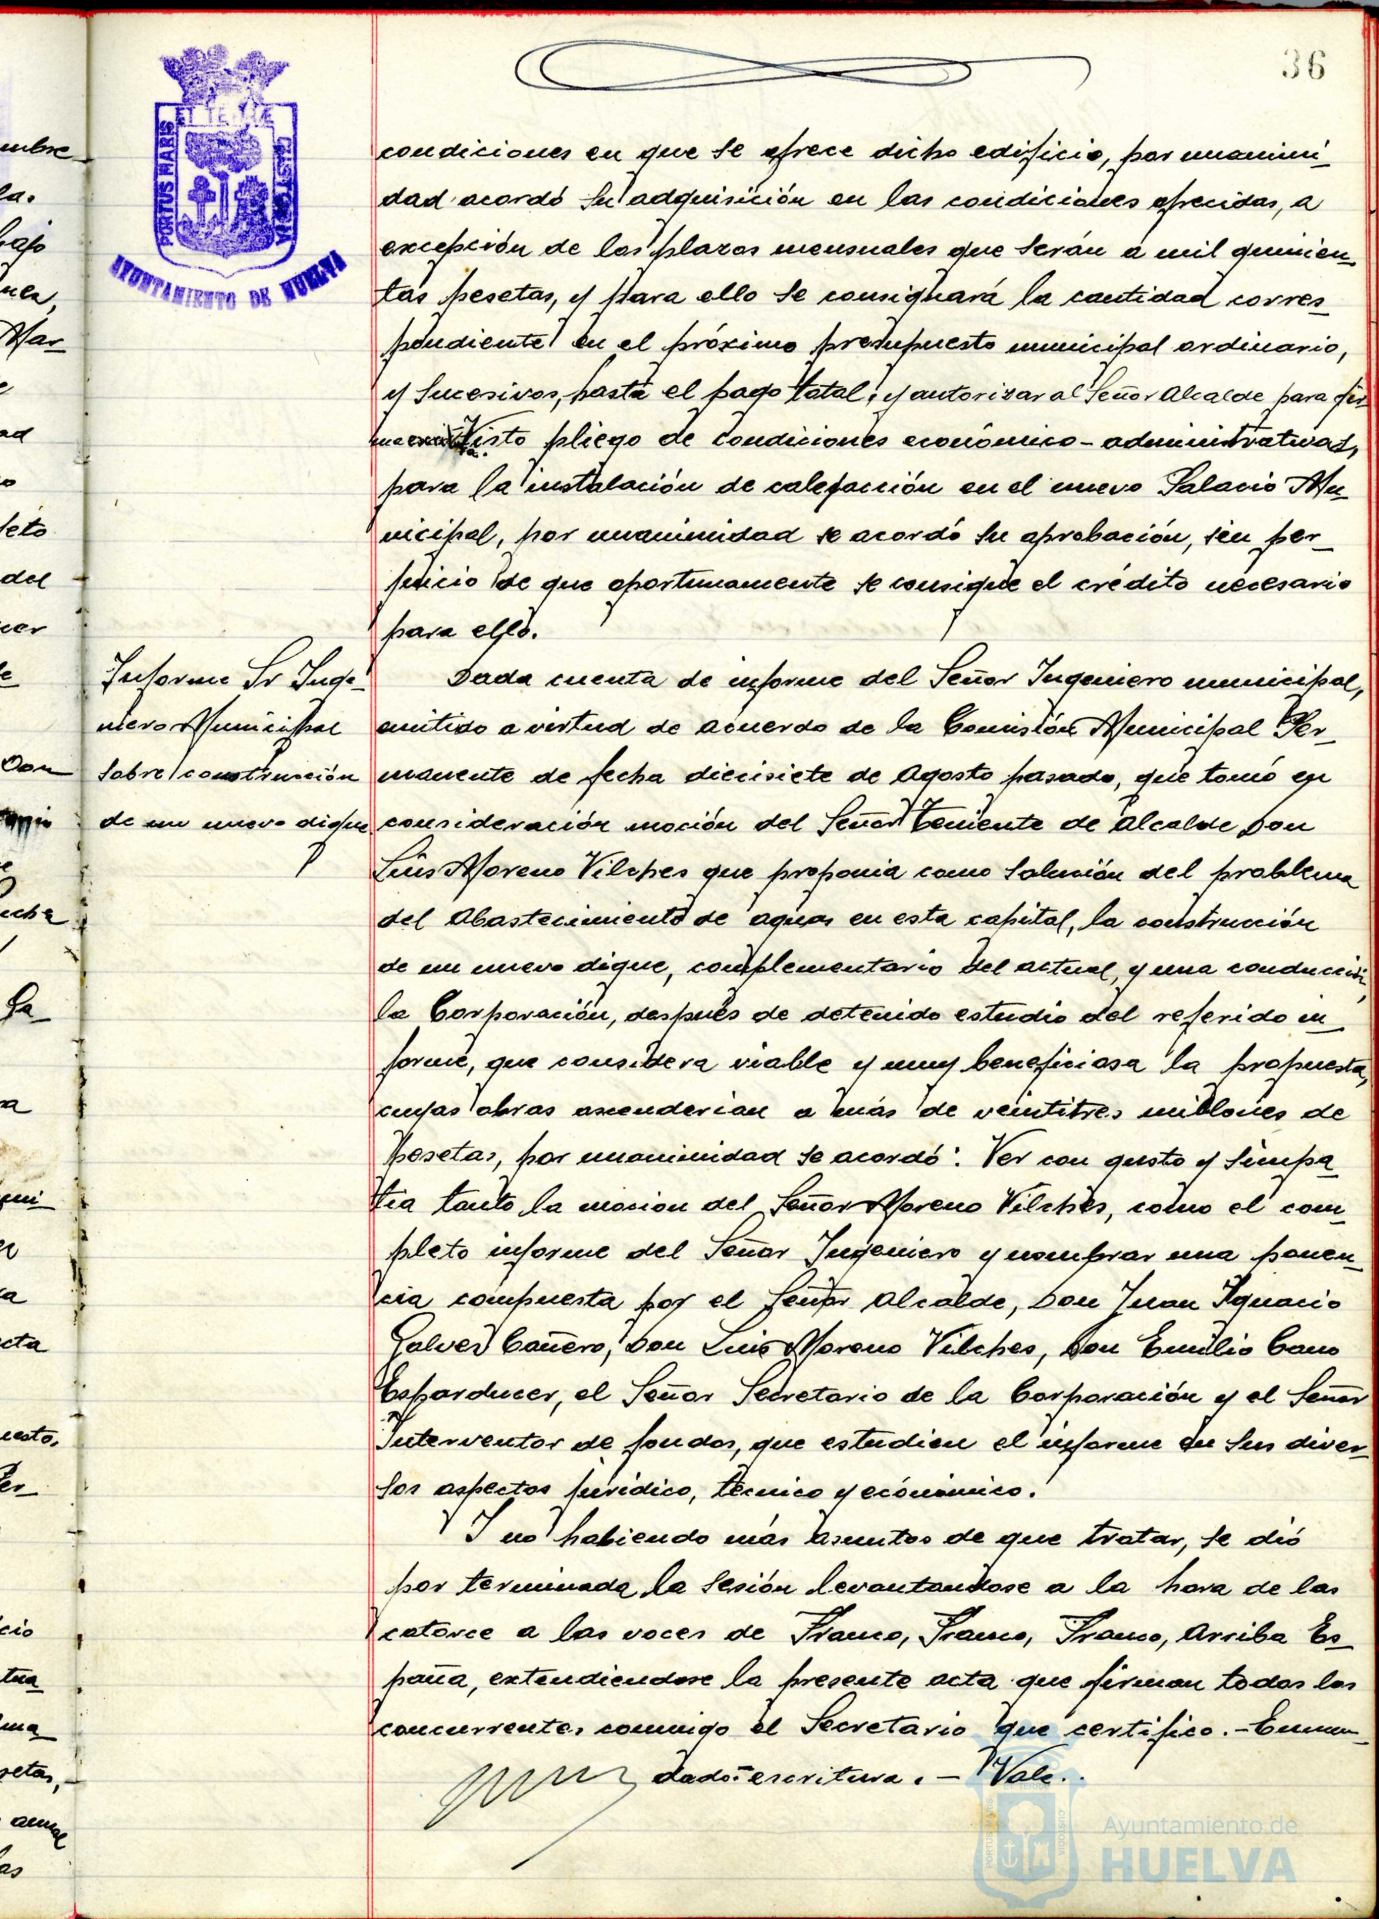 36
PORTUS MARIS
ET TERRÆ
CUSTODIA
AYUNTAMIENTO DE HUELVA
condiciones en que se ofrece dicho edificio, por unanimi-
dad acordó su adquisición en las condiciones ofrecidas, a
excepción de los plazos mensuales que serán a mil quinien-
tas pesetas, y para ello se consignará la cantidad corres-
pondiente en el próximo presupuesto municipal ordinario,
y sucesivos, hasta el pago total; y autorizar al Señor Alcalde para fir-
Visto pliego de condiciones económico-administrativas,
para la instalación de calefacción en el nuevo Palacio Mu-
nicipal, por unanimidad se acordó su aprobación, sin per-
juicio de que oportunamente se consigne el crédito necesario
para ello.
Informe Sr Inge-
niero Municipal
sobre construcción
de un nuevo dique
Dada cuenta de informe del Señor Ingeniero municipal,
emitido a virtud de acuerdo de la Comisión Municipal Per-
manente de fecha diecisiete de Agosto pasado, que tomó en
consideración moción del Señor Teniente de Alcalde Don
Luis Moreno Vilches que proponia como solución del problema
del Abastecimiento de aguas en esta capital, la construcción
de un nuevo dique, complementario del actual, y una conducción,
la Corporación, después de detenido estudio del referido in-
forme, que considera viable y muy beneficiosa la propuesta,
cuyas obras ascenderian a más de veintitres millones de
pesetas, por unanimidad se acordó: Ver con gusto y simpa-
tia tanto la mocion del Señor Moreno Vilches, como el com-
pleto informe del Señor Ingeniero y nombrar una ponen-
cia compuesta por el Señor Alcalde, Don Juan Ignacio
Galvez Cañero, Don Luis Moreno Vilches, Don Emilio Cano
Esparducer, el Señor Secretario de la Corporación y el Señor
Interventor de fondos, que estudien el informe en sus diver-
sos aspectos jurídico, técnico y económico.
Y no habiendo más asuntos de que tratar, se dió
por terminada la sesión levantandose a la hora de las
catorce a las voces de Franco, Franco, Franco, Arriba Es-
paña, extendiendose la presente acta que firman todos los
concurrentes conmigo el Secretario que certifico.-Enmen-
dado: escritura.- Vale.
Ayuntamiento de
HUELVA